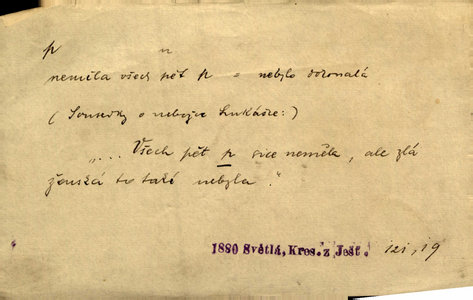 p n
neměla všech pět p = nebyla dokonalá
(Sousedky o nebojce Lukášce:)
„... Všech pět p sice neměla, ale zlá
ženská to také nebyla."
1880 Světlá, Kres. z Ješt. 121, 19